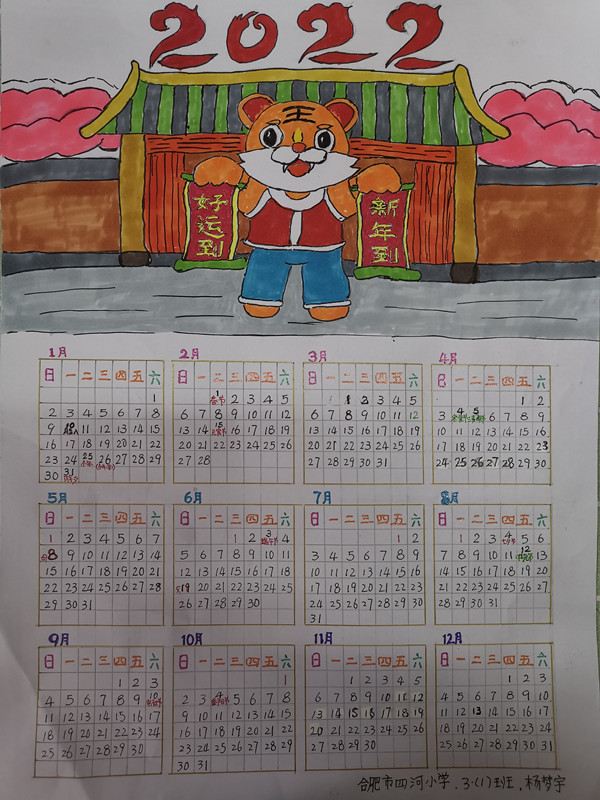 2022
好运到
新年到
1月
日 一 二 三 四 五 六
1
2 3 4 5 6 7 8
9 10 11 12 13 14 15
16 17 18 19 20 21 22
23 24 25 26 27 28 29
小年
30 31
除夕
2月
日 一 二 三 四 五 六
1 2 3 4 5
春节
6 7 8 9 10 11 12
13 14 15 16 17 18 19
元宵节
20 21 22 23 24 25 26
27 28
3月
日 一 二 三 四 五 六
1 2 3 4 5
6 7 8 9 10 11 12
13 14 15 16 17 18 19
20 21 22 23 24 25 26
27 28 29 30 31
4月
日 一 二 三 四 五 六
1 2
3 4 5 6 7 8 9
10 11 12 13 14 15 16
17 18 19 20 21 22 23
24 25 26 27 28 29 30
5月
日 一 二 三 四 五 六
1 2 3 4 5 6 7
8 9 10 11 12 13 14
15 16 17 18 19 20 21
22 23 24 25 26 27 28
29 30 31
6月
日 一 二 三 四 五 六
1 2 3 4
端午节
5 6 7 8 9 10 11
12 13 14 15 16 17 18
19 20 21 22 23 24 25
26 27 28 29 30
7月
日 一 二 三 四 五 六
1 2
3 4 5 6 7 8 9
10 11 12 13 14 15 16
17 18 19 20 21 22 23
24 25 26 27 28 29 30
31
8月
日 一 二 三 四 五 六
1 2 3 4 5 6
七夕节
7 8 9 10 11 12 13
中元节
14 15 16 17 18 19 20
21 22 23 24 25 26 27
28 29 30 31
9月
日 一 二 三 四 五 六
1 2 3
4 5 6 7 8 9 10
中秋节
11 12 13 14 15 16 17
18 19 20 21 22 23 24
25 26 27 28 29 30
10月
日 一 二 三 四 五 六
1
2 3 4 5 6 7 8
重阳节
9 10 11 12 13 14 15
16 17 18 19 20 21 22
23 24 25 26 27 28 29
30 31
11月
日 一 二 三 四 五 六
1 2 3 4 5
6 7 8 9 10 11 12
13 14 15 16 17 18 19
20 21 22 23 24 25 26
27 28 29 30
12月
日 一 二 三 四 五 六
1 2 3
4 5 6 7 8 9 10
11 12 13 14 15 16 17
18 19 20 21 22 23 24
25 26 27 28 29 30 31
合肥市四河小学.3.(1)班.杨梦宇